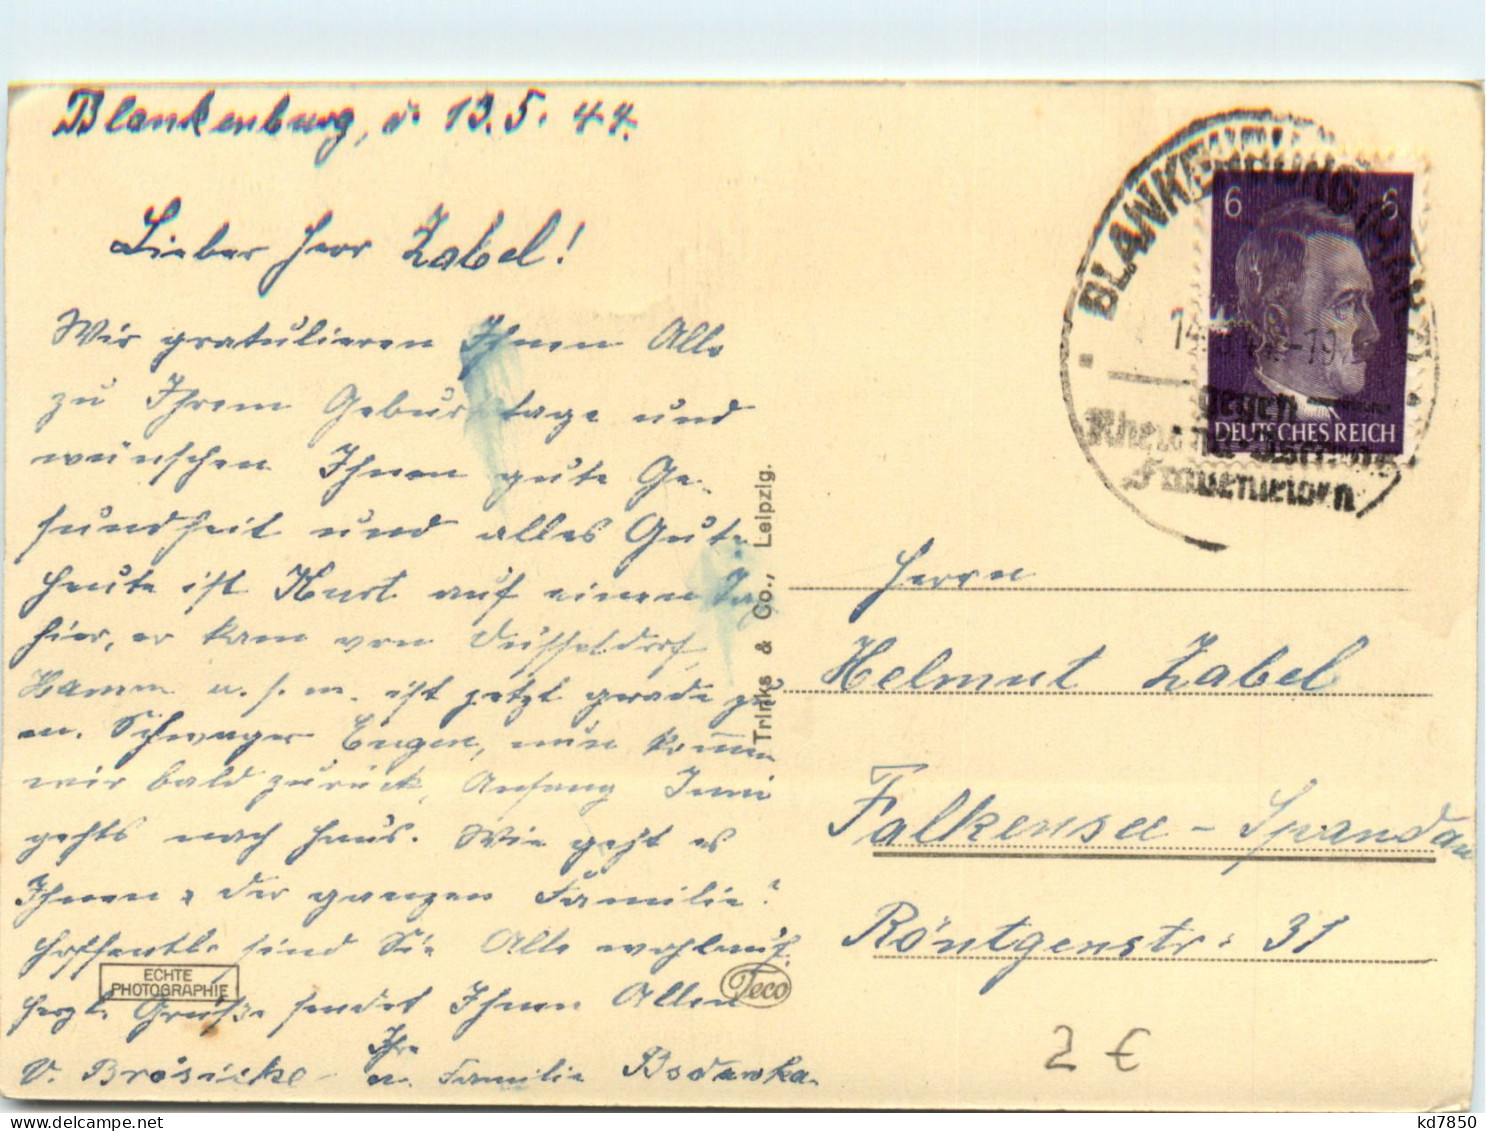 Blankenburg, d. 13.5.44.
Lieber Herr Zabel!
Wir gratulieren Ihnen Alle
zu Ihrem Geburtstage und
wünschen Ihnen gute Ge-
sundheit und alles Gute.
Heute ist Kurt auf einen Tag
hier, er kam von Düsseldorf,
Hamm u. s. w. ist jetzt gerade zu
m. Schwager Eugen, nun komm
wir bald zurück, Anfang Juni
gehts nach Haus. Wie geht es
Ihnen u. der ganzen Familie?
Hoffentl. sind Sie Alle wohlauf.
Herzl. Grüße sendet Ihnen Allen
Ihre
V. Brösicke u. Familie
Trinks & Co., Leipzig.
ECHTE
PHOTOGRAPHIE
Teco
BLANKENBURG
6 6
DEUTSCHES REICH
gegen
Rheuma
Frauenleiden
Herrn
Helmut Zabel
Falkensee - Spandau
Röntgenstr: 31
2 €
kd7850